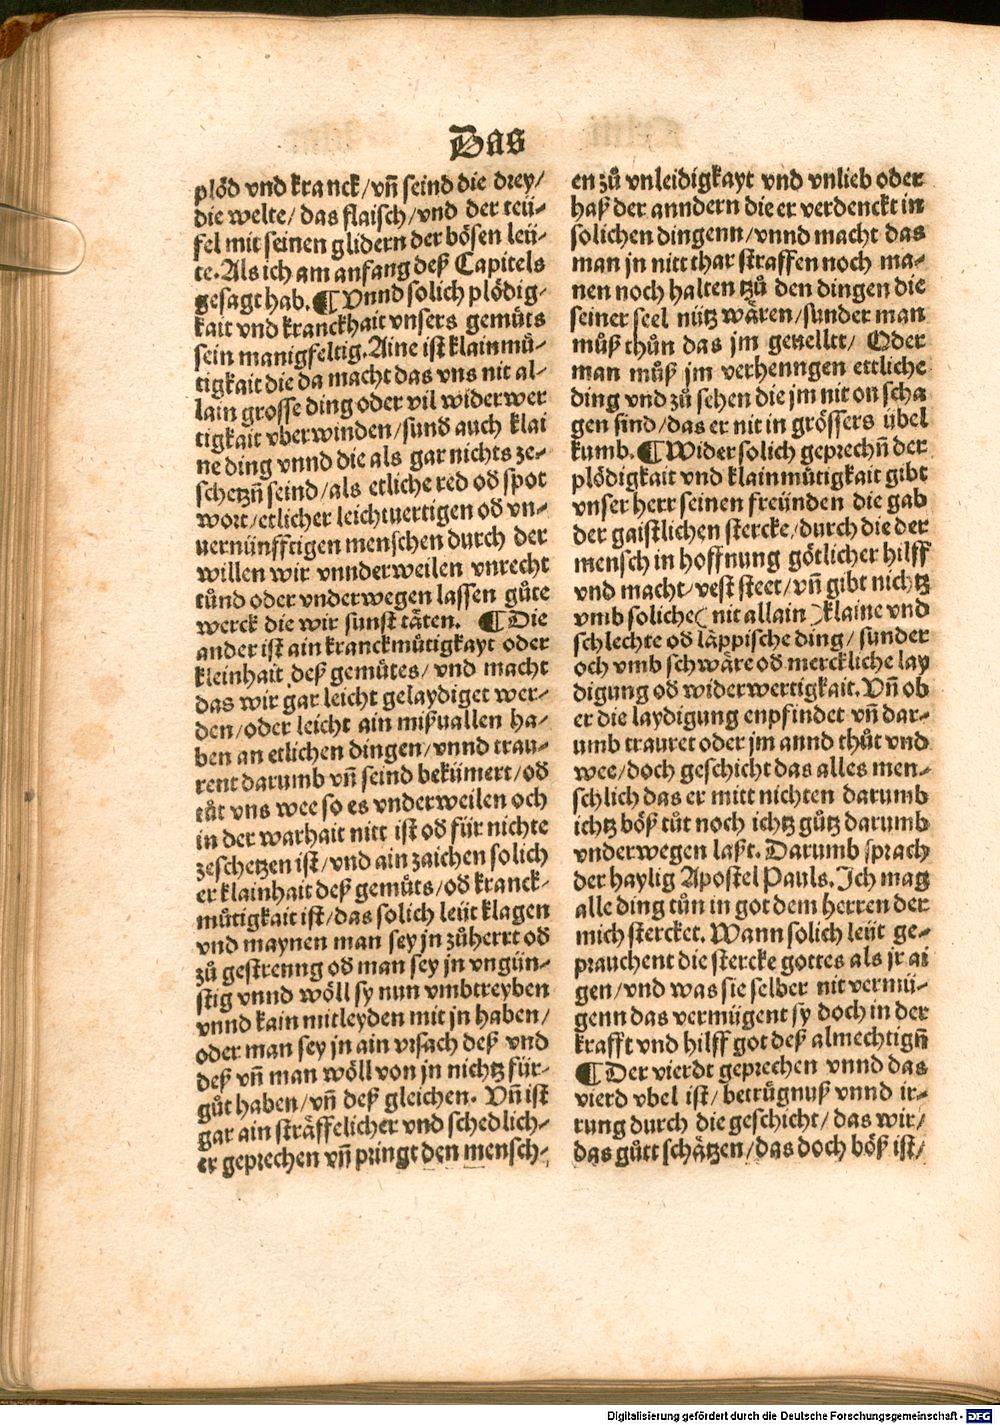 Das
plöd vnd kranck/vn̄ seind die drey/
die welte/das flaisch/vnd der teü⸗
fel mit seinen glidern der bösen leü⸗
te. Als ich am anfang deß Capitels
gesagt hab. ¶ Vnnd solich plödig⸗
kait vnd kranckhait vnsers gemüts
sein manigfeltig. Aine ist klainmü⸗
tigkait die da macht das vns nit al⸗
lain grosse ding oder vil widerwer
tigkait vberwinden/sund̄ auch klai
ne ding vnnd die als gar nichts ze⸗
schetzn̄ seind/als etliche red od̄ spot
wort/etlicher leichtuertigen od̄ vn⸗
uernünfftigen menschen durch der
willen wir vnnderweilen vnrecht
tůnd oder vnderwegen lassen gůte
werck die wir sunst täten. ¶ Die
ander ist ain kranckmütigkayt oder
kleinhait deß gemütes/vnd macht
das wir gar leicht gelaydiget wer⸗
den/oder leicht ain mißuallen ha⸗
ben an etlichen dingen/vnnd trau⸗
rent darumb vn̄ seind bekümert/od̄
tůt vns wee so es vnderweilen och
in der warhait nitt ist od̄ für nichte
zeschetzen ist/vnd ain zaichen solich
er klainhait deß gemüts/od̄ kranck⸗
mütigkait ist/das solich leüt klagen
vnd maynen man sey jn zůherrt od̄
zů gestrenng od̄ man sey jn vngün⸗
stig vnnd wöll sy nun vmbtreyben
vnnd kain mitleyden mit jn haben/
oder man sey jn ain vrsach deß vnd
deß vn̄ man wöll von jn nichtz für⸗
gůt haben/vn̄ deß gleichen. Vn̄ ist
gar ain sträffelicher vnd schedlich⸗
er geprechen vn̄ pringt den mensch⸗
en zů vnleidigkayt vnd vnlieb oder
haß der anndern die er verdenckt in
solichen dingenn/vnnd macht das
man jn nitt thar straffen noch ma⸗
nen noch halten tzů den dingen die
seiner seel nütz wären/sunder man
můß thůn das jm geuellt/ Oder
man můß jm verhenngen ettliche
ding vnd zů sehen die jm nit on scha
gen sind/das er nit in grössers übel
kumb. ¶ Wider solich geprechn̄ der
plödigkait vnd klainmütigkait gibt
vnser herr seinen freünden die gab
der gaistlichen stercke/durch die der
mensch in hoffnung götlicher hilff
vnd macht/vest steet/vn̄ gibt nichtz
vmb soliche(nit allain)klaine vnd
schlechte od̄ läppische ding/sunder
och vmb schwäre od̄ merckliche lay
digung od̄ widerwertigkait. Vn̄ ob
er die laydigung enpfindet vn̄ dar⸗
umb trauret oder jm annd thůt vnd
wee/doch geschicht das alles men⸗
schlich das er mitt nichten darumb
ichtz böß tůt noch ichtz gůtz darumb
vnderwegen laßt. Darumb sprach
der haylig Apostel Pauls. Ich mag
alle ding tůn in got dem herren der
mich stercket. Wann solich leüt ge⸗
prauchent die stercke gottes als jr ai
gen/vnd was sie selber nit vermü⸗
genn das vermügent sy doch in der
krafft vnd hilff got deß almechtign̄
¶ Der vierdt geprechen vnnd das
vierd vbel ist/betrügnuß vnnd ir⸗
rung durch die geschicht/das wir/
das gůtt schätzen/das doch böß ist/
Digitalisierung gefördert durch die Deutsche Forschungsgemeinschaft - DFG